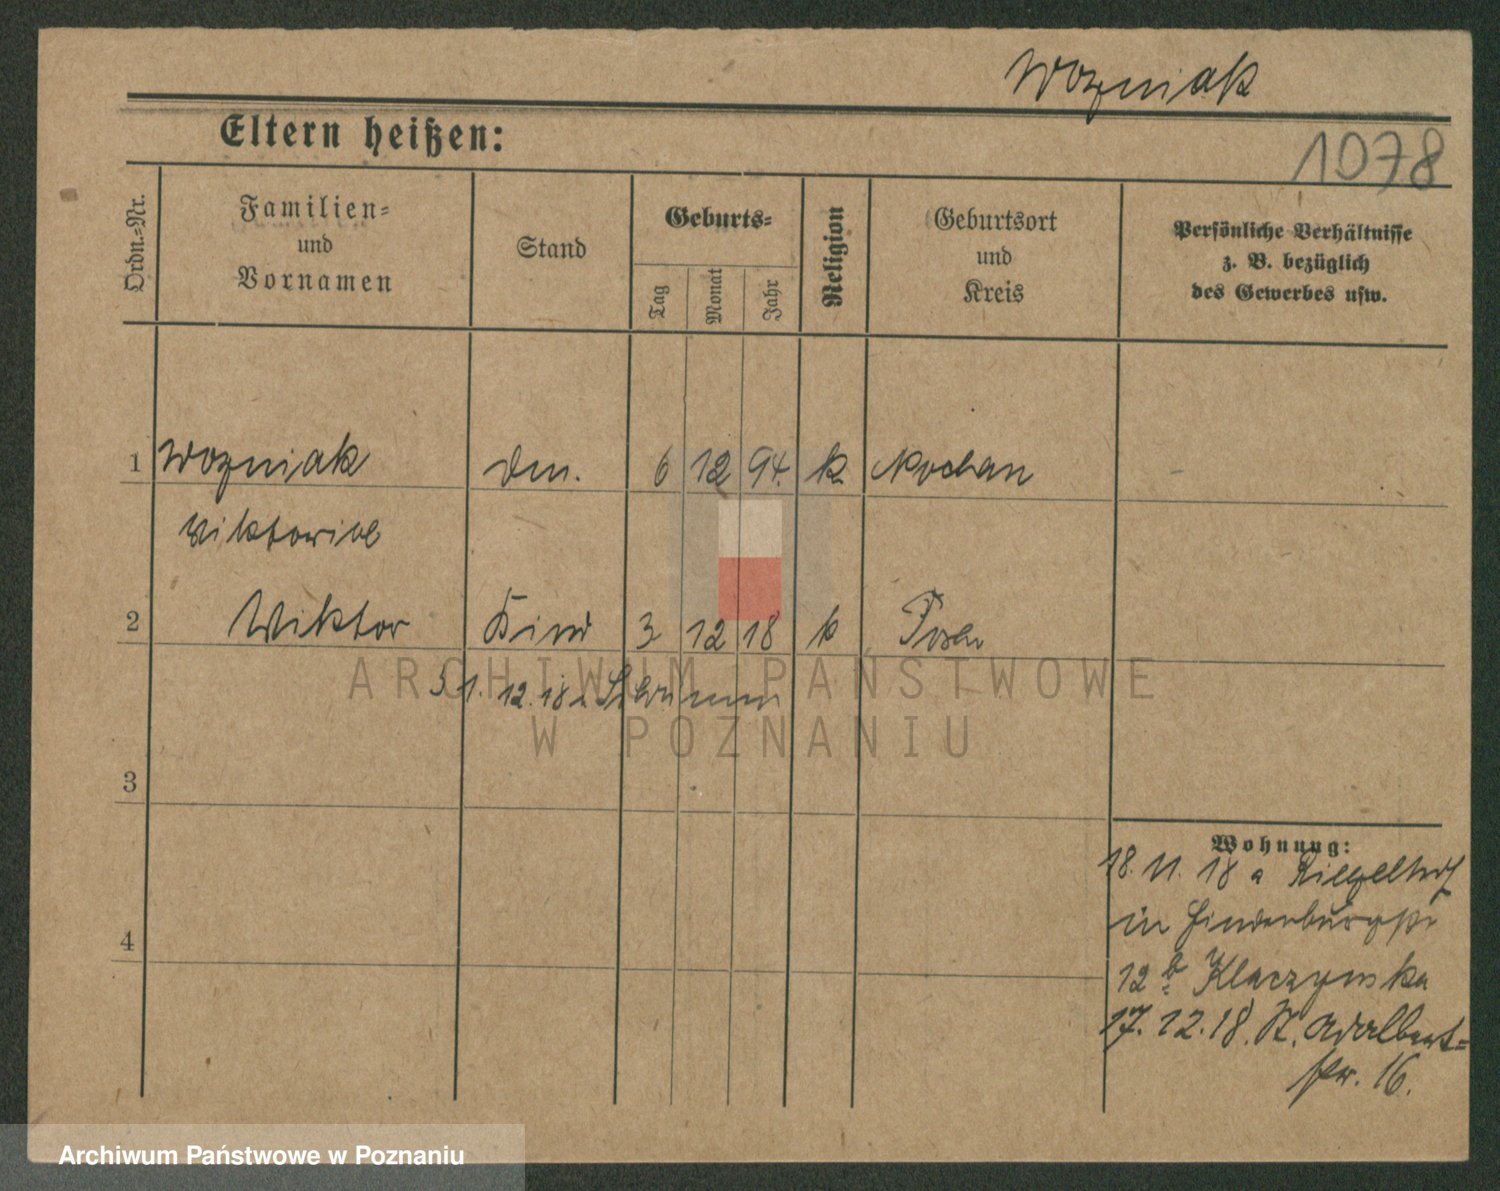 Wozniak
Eltern heißen:
1078
Ordn.=Nr.
Familien=
und
Vornamen
Stand
Geburts=
Tag
Monat
Jahr
Religion
Geburtsort
und
Kreis
Persönliche Verhältnisse
z. B. bezüglich
des Gewerbes usw.
1 Wozniak 6 12 94. k Mochan
Viktoria
2 Wiktor Kind 3 12 18 k Posen
31. 12. 18 n Schrimm
3
4
Wohnung:
18. 11. 18 a
in Hindenburgstr
12 b
17. 12. 18. St. Adalbert=
str. 16.
ARCHIWUM PAŃSTWOWE
W POZNANIU
Archiwum Państwowe w Poznaniu